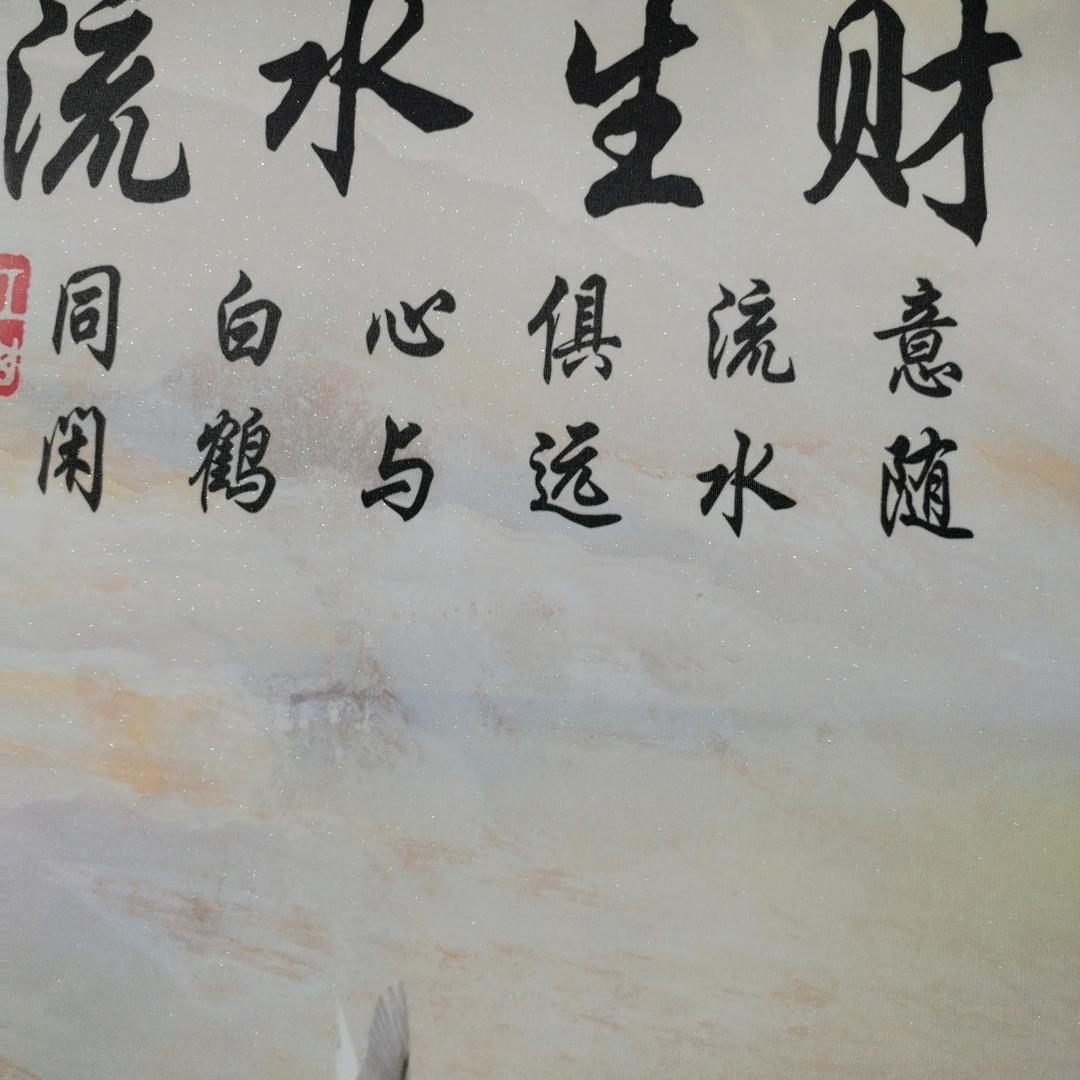 流水生财
意随
流水
俱远
心与
白鹤
同闲